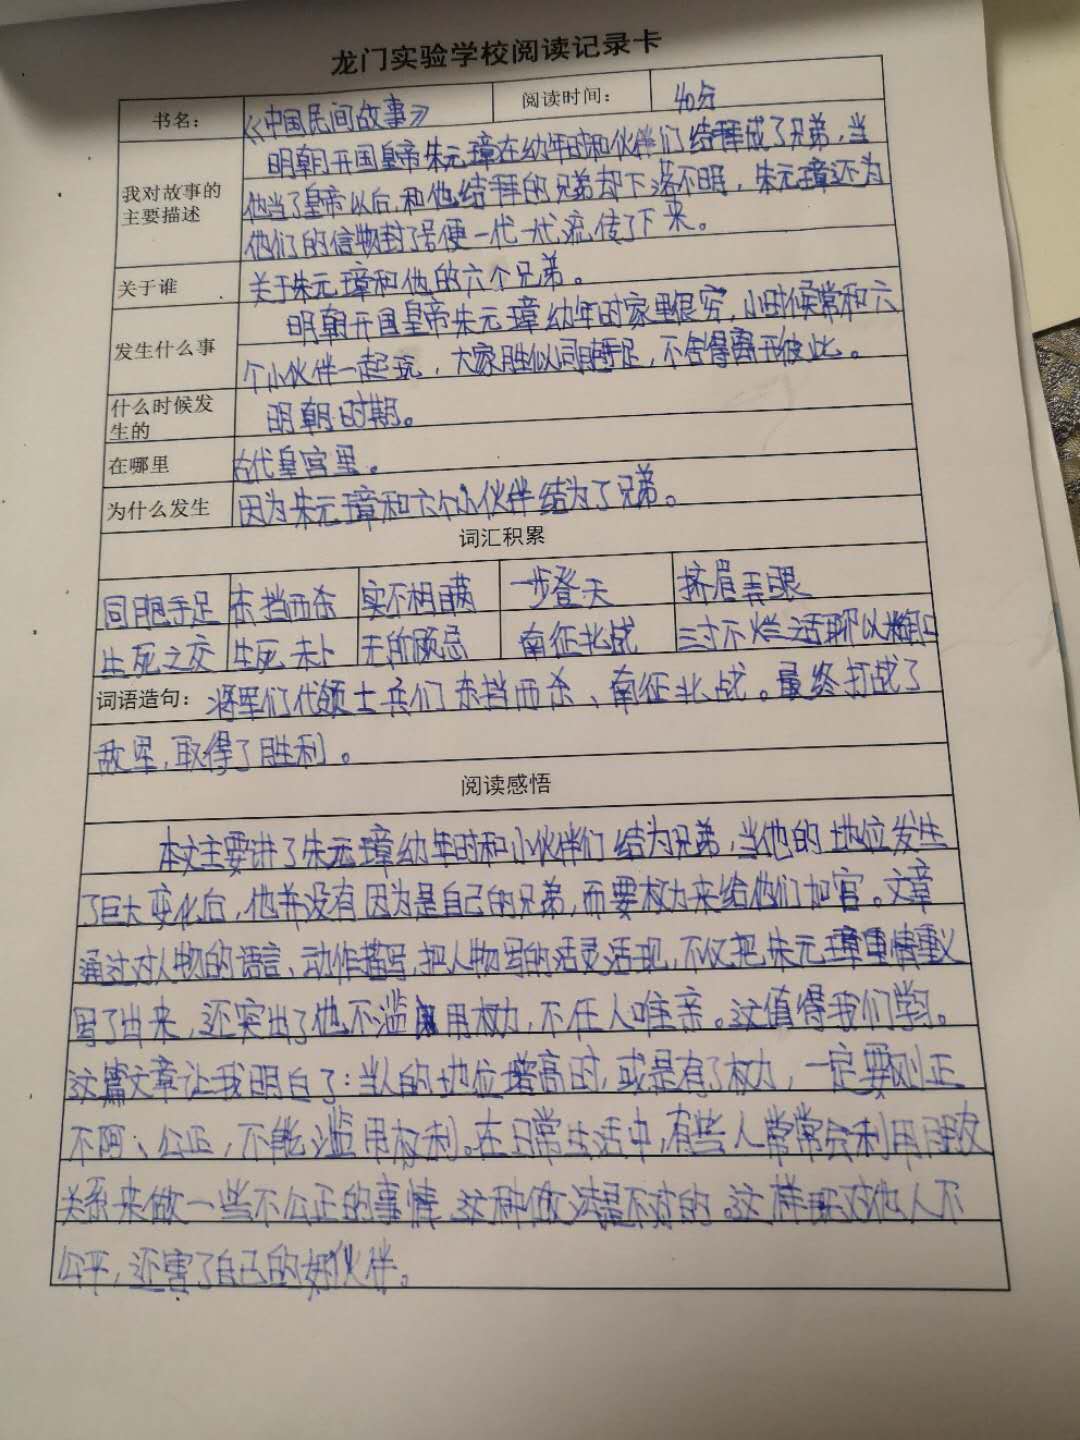 龙门实验学校阅读记录卡
书名： 《中国民间故事》 阅读时间： 40分
我对故事的主要描述
明朝开国皇帝朱元璋在幼年时和伙伴们结拜成了兄弟，当
他当了皇帝以后，和他结拜的兄弟却下落不明，朱元璋还为
他们的信物封了号便一代一代流传了下来。
关于谁 关于朱元璋和他的六个兄弟。
发生什么事
明朝开国皇帝朱元璋幼年时家里很穷，小时候常和六
个小伙伴一起玩，大家胜似同胞手足，不舍得离开彼此。
什么时候发生的 明朝时期。
在哪里 古代皇宫里。
为什么发生 因为朱元璋和六个小伙伴结为了兄弟。
词汇积累
同胞手足 东挡西杀 实不相瞒 一步登天 挤眉弄眼
生死之交 生死未卜 无所顾忌 南征北战 三寸不烂之舌 聊以糊口
词语造句： 将军们代领士兵们东挡西杀、南征北战。最终打战了
敌军，取得了胜利。
阅读感悟
本文主要讲了朱元璋幼年时和小伙伴们结为兄弟，当他的地位发生
了巨大变化后，他并没有因为是自己的兄弟，而要权力来给他们加官。文章
通过对人物的语言、动作描写，把人物写的活灵活现，不仅把朱元璋重情重义
写了出来，还突出了他不滥用权力，不任人唯亲。这值得我们学习。
这篇文章让我明白了：当人的地位增高时，或是有了权力，一定要刚正
不阿、公正，不能滥用权利。在日常生活中，有些人常常会利用朋友
关系来做一些不公正的事情，这种做法是不对的。这样对他人不
公平，还害了自己的好伙伴。